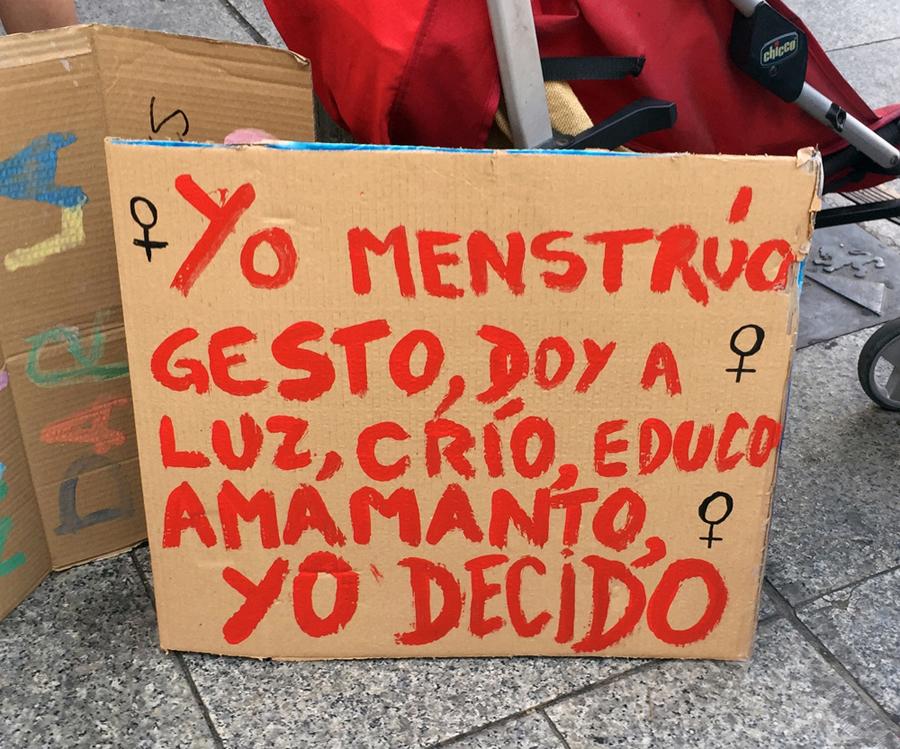 ♀ YO MENSTRÚO
GESTO, DOY A ♀
LUZ, CRÍO, EDUCO
AMAMANTO, ♀
YO DECIDO
chicco
DAR